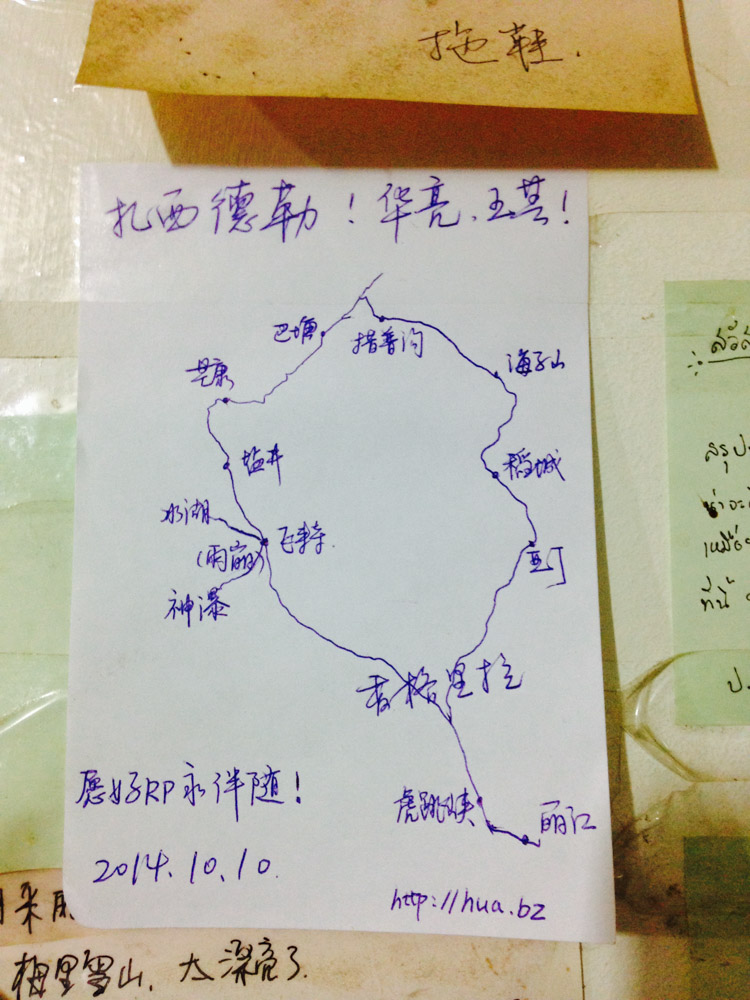 拖鞋.
扎西德勒！华亮、玉芸！
巴塘
措普沟
海子山
芒康
盐井
稻城
冰湖
(雨崩)
飞来寺
神瀑
亚丁
香格里拉
虎跳峡
丽江
愿好RP永伴随！
2014.10.10.
http://hua.bz
สวัส
สรุป
น่าจะ
เหมือ
ที่นี่
ป.
梅里雪山，太漂亮了.